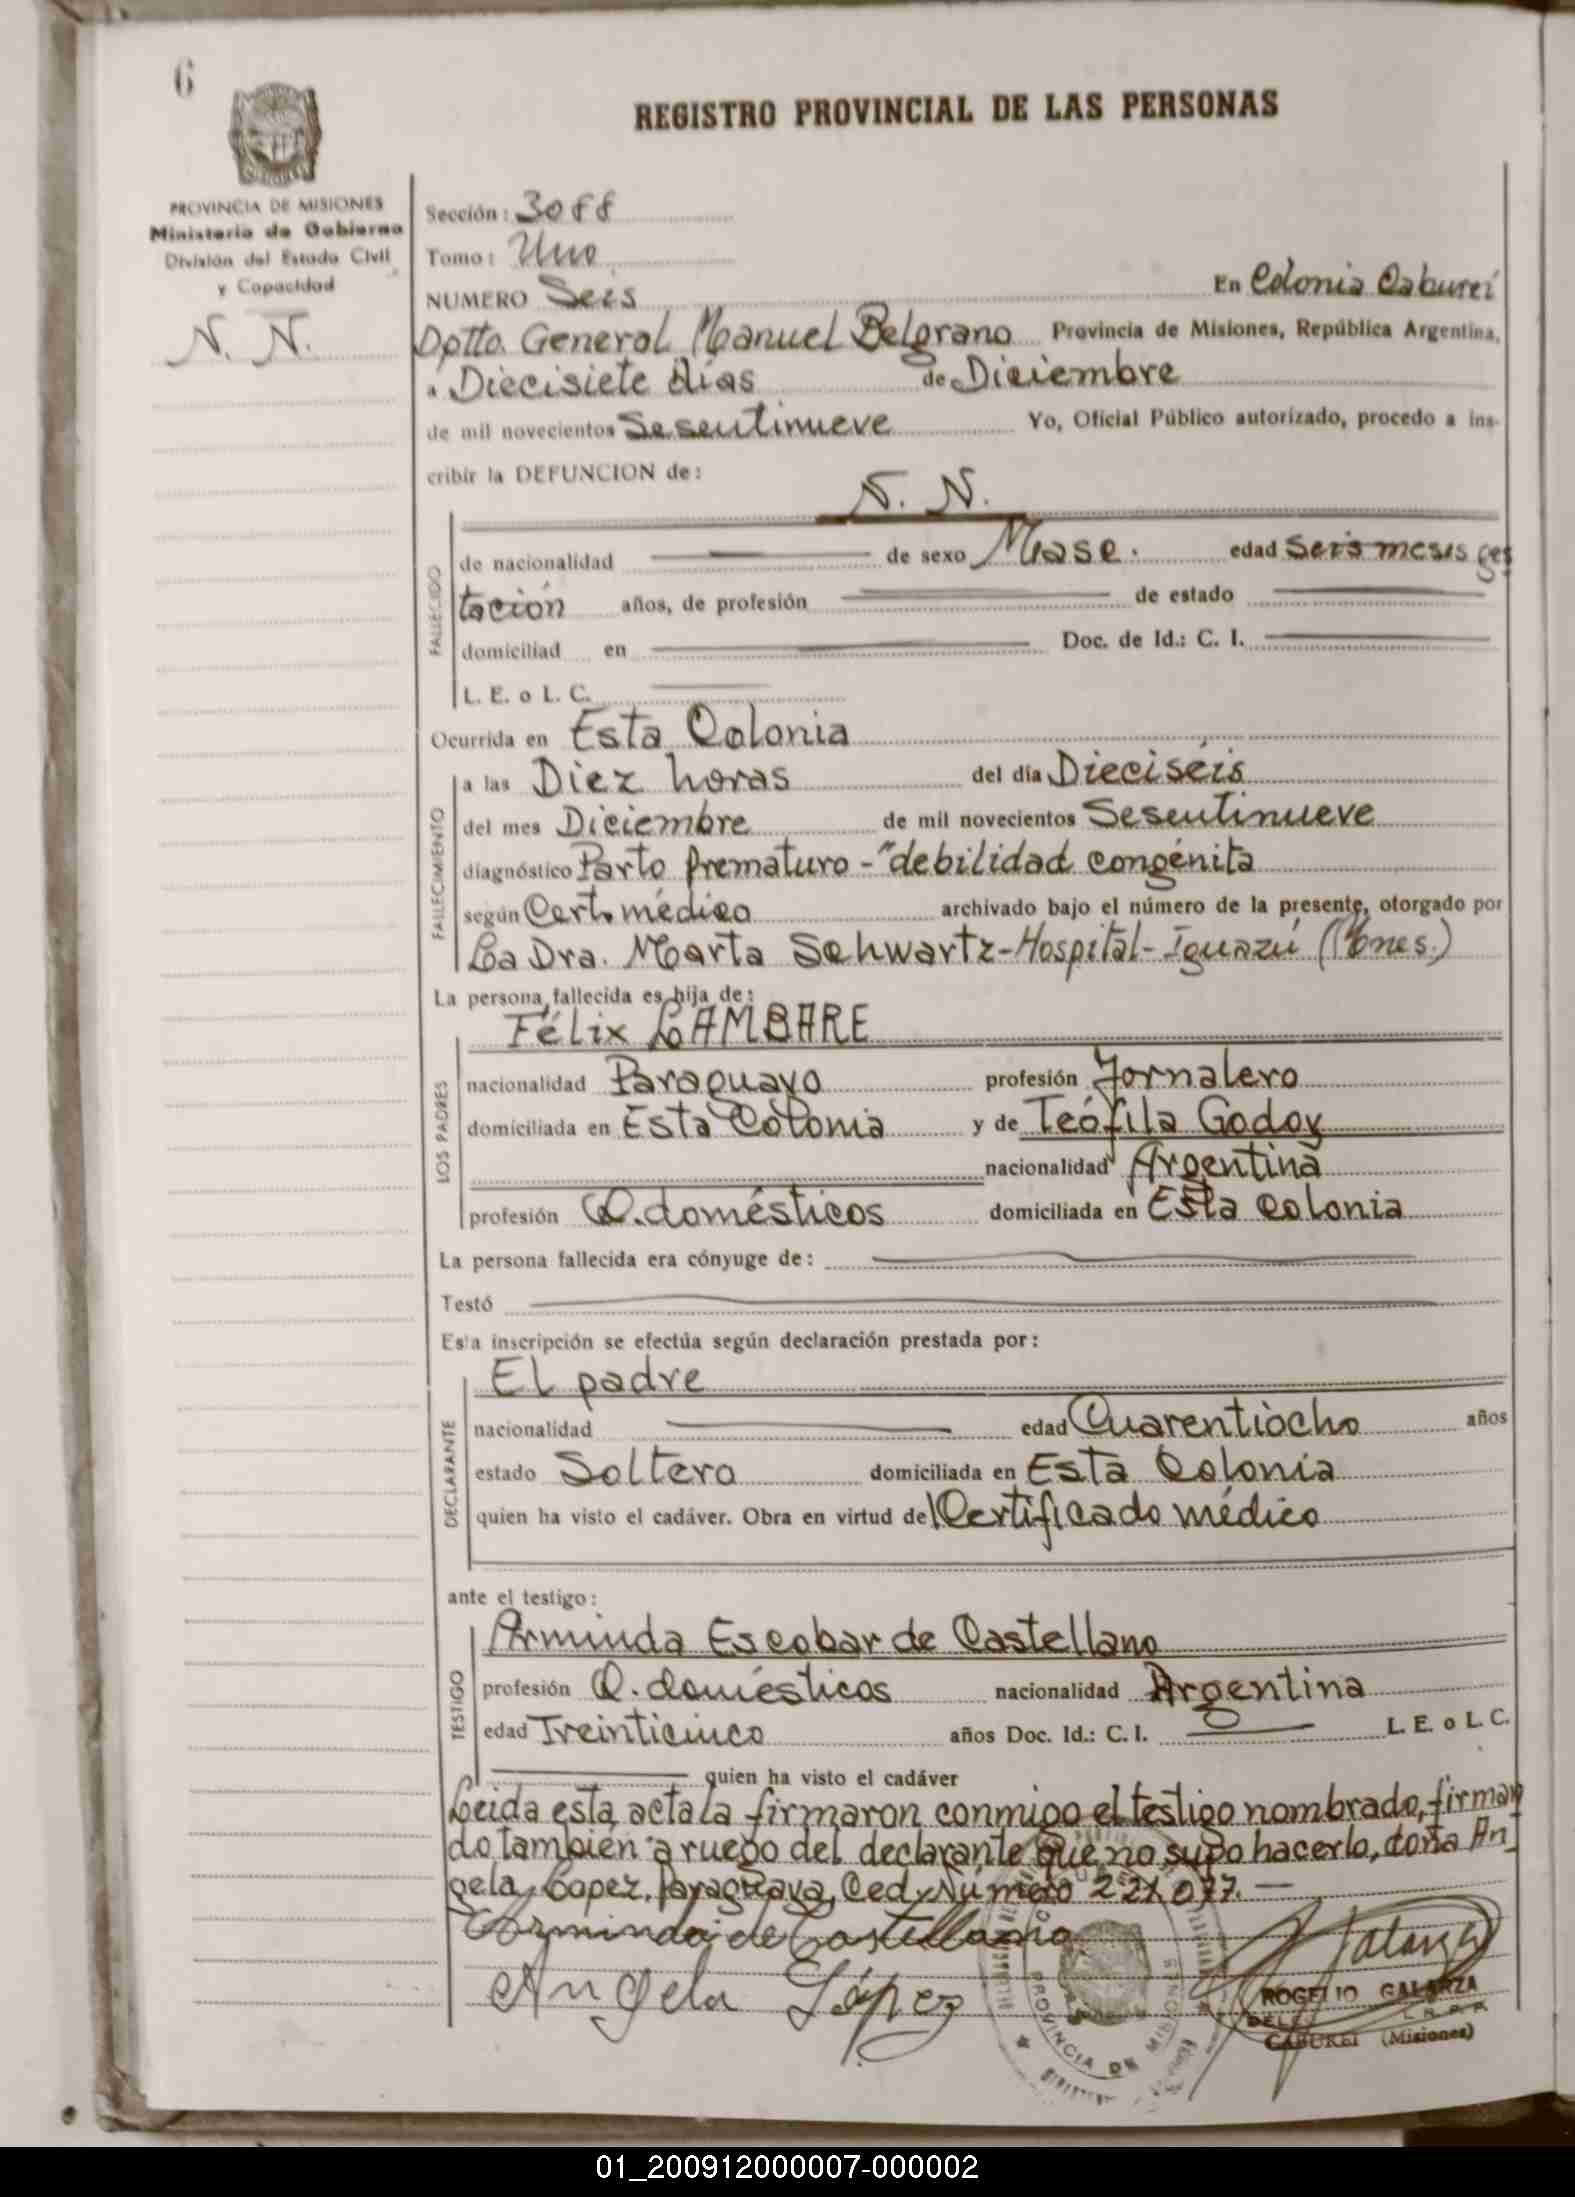 6
REGISTRO PROVINCIAL DE LAS PERSONAS
PROVINCIA DE MISIONES
Ministerio de Gobierno
División del Estado Civil
y Capacidad
N. N.
Sección: 3088
Tomo: Uno
NUMERO Seis En Colonia Caburei
Dptto. General Manuel Belgrano Provincia de Misiones, República Argentina,
a Diecisiete días de Diciembre
de mil novecientos Sesentinueve Yo, Oficial Público autorizado, procedo a ins-
cribir la DEFUNCION de:
N. N.
FALLECIDO
de nacionalidad de sexo Masc. edad Seis meses ges
tación años, de profesión de estado
domiciliad en Doc. de Id.: C. I.
L. E. o L. C.
Ocurrida en Esta Colonia
FALLECIMIENTO
a las Diez horas del día Dieciséis
del mes Diciembre de mil novecientos Sesentinueve
diagnóstico Parto Prematuro - "debilidad congénita
según Cert. médico archivado bajo el número de la presente, otorgado por
La Dra. Marta Schwartz-Hospital-Iguazú (Mnes.)
La persona fallecida es hija de:
LOS PADRES
Félix LAMBARE
nacionalidad Paraguayo profesión Jornalero
domiciliada en Esta Colonia y de Teófila Godoy
nacionalidad Argentina
profesión Q. domésticos domiciliada en Esta Colonia
La persona fallecida era cónyuge de:
Testó
Esta inscripción se efectúa según declaración prestada por:
DECLARANTE
El padre
nacionalidad edad Cuarentiocho años
estado Soltero domiciliada en Esta Colonia
quien ha visto el cadáver. Obra en virtud de Certificado médico
ante el testigo:
TESTIGO
Arminda Escobar de Castellano
profesión Q. domésticos nacionalidad Argentina
edad Treinticinco años Doc. Id.: C. I. L. E. o L. C.
quien ha visto el cadáver
Leida esta acta la firmaron conmigo el testigo nombrado, firman
do tambien a ruego del declarante que no supo hacerlo, doña An
gela Lopez, Paraguaya, Ced. Número 221.077.—
Arminda de Castellano
Angela López
Galarza
PROVINCIA DE MISIONES
ROGELIO GALARZA
CABUREI (Misiones)
01_200912000007-000002